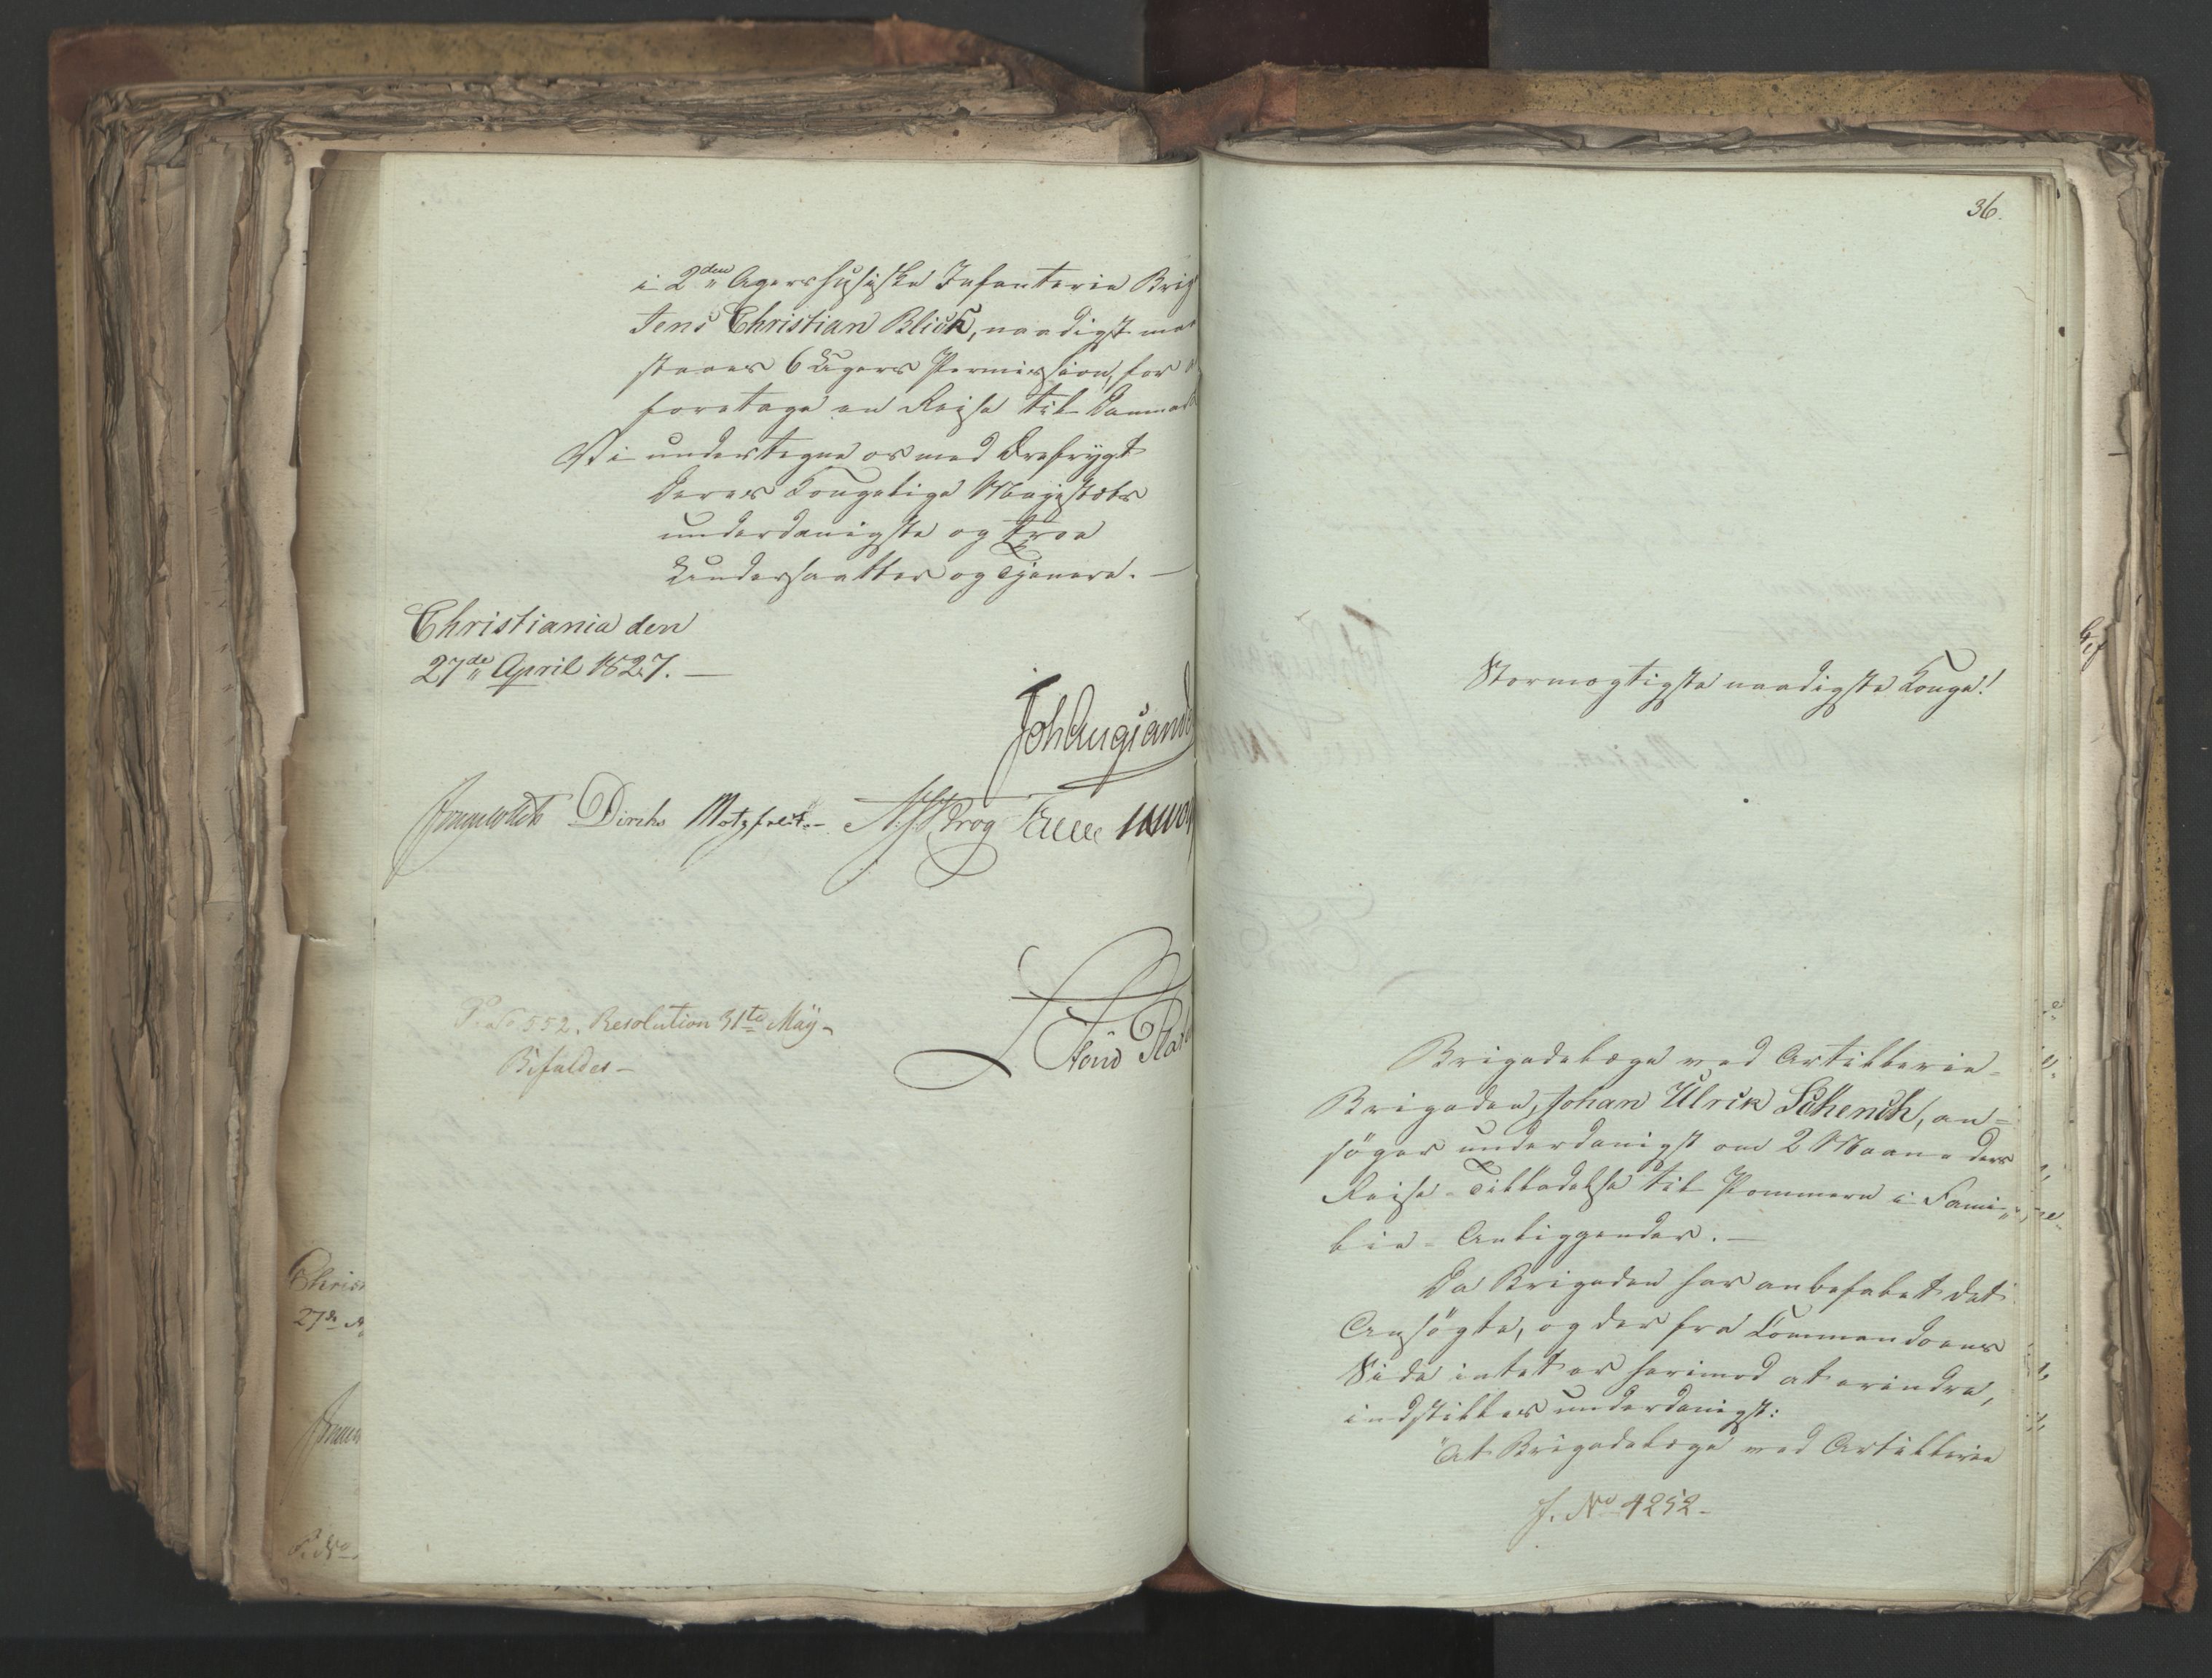 i 2den Agershusiske Infanterie Brig
Jens Christian Blich, naadigst maa
staaes 6 Ugers Permission, for
foretage en Reise til Danmark
Vi undertegne os med Ærefrygt
Deres Kongelige Majestæts
underdanigste og troe
Undersaatter og Tjenere. —
Christiania den
27de April 1827. —
Joh Aug Sande
Diriks Motzfeldt. — Krog
P. No 552. Resolution 31te May —
Bifaldes —
Chris
27de A
P. No
36.
Stormægtigste naadigste Konge!
Brigadelæge ved Artillerie-
Brigaden, Johan Ulrik Schench, an-
søger underdanigst om 2 Maaneders
Reise-Tilladelse til Pommern i Fami-
lie-Anliggender. —
Da Brigaden har anbefalet det
Ansøgte, og der fra Commandoens
Side intet er herimod at erindre,
indstilles underdanigst:
"At Brigadelæge ved Artillerie
J. No 4252 —